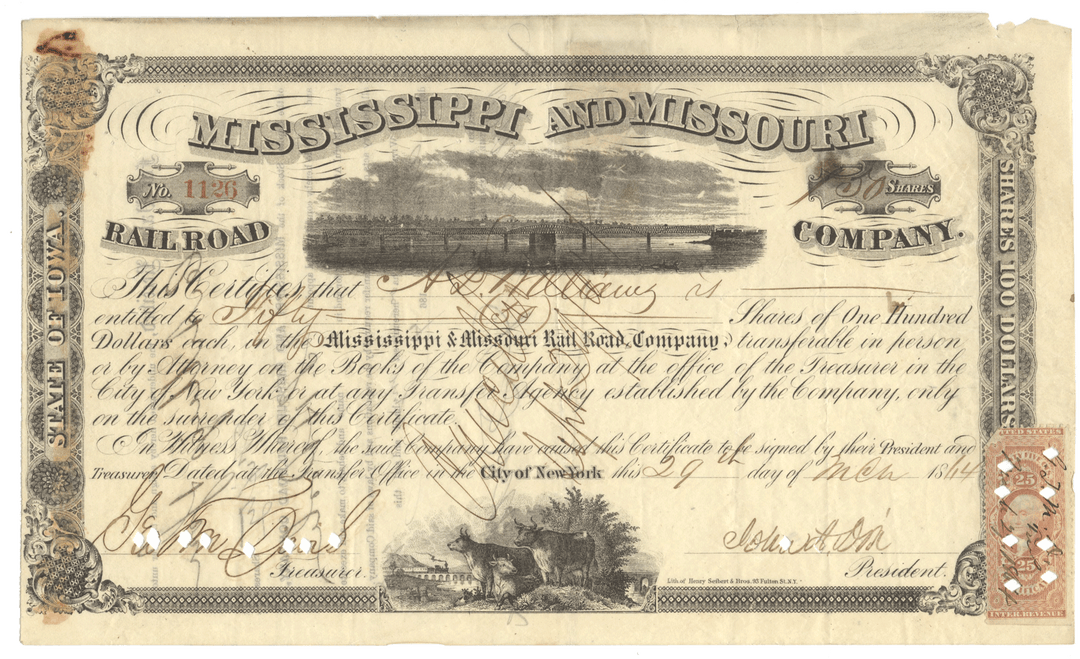 MISSISSIPPI AND MISSOURI
No. 1126
50 SHARES
RAIL ROAD
COMPANY.
STATE OF IOWA.
SHARES 100 DOLLARS
This Certifies that A D Williams is
entitled to Fifty (50) Shares of One Hundred
Dollars each, in the Mississippi & Missouri Rail Road Company, transferable in person
or by Attorney on the Books of the Company at the office of the Treasurer in the
City of New York or at any Transfer Agency established by the Company, only
on the surrender of this Certificate.
In Witness Whereof, the said Company have caused this Certificate to be signed by their President and
Treasurer Dated at the Transfer Office in the City of New York this 29th day of Mch 1864
Cancelled
Treasurer.
John A Dix
President.
Lith. of Henry Seibert & Bros. 93 Fulton St. N.Y.
UNITED STATES
25
25
INTER. REVENUE